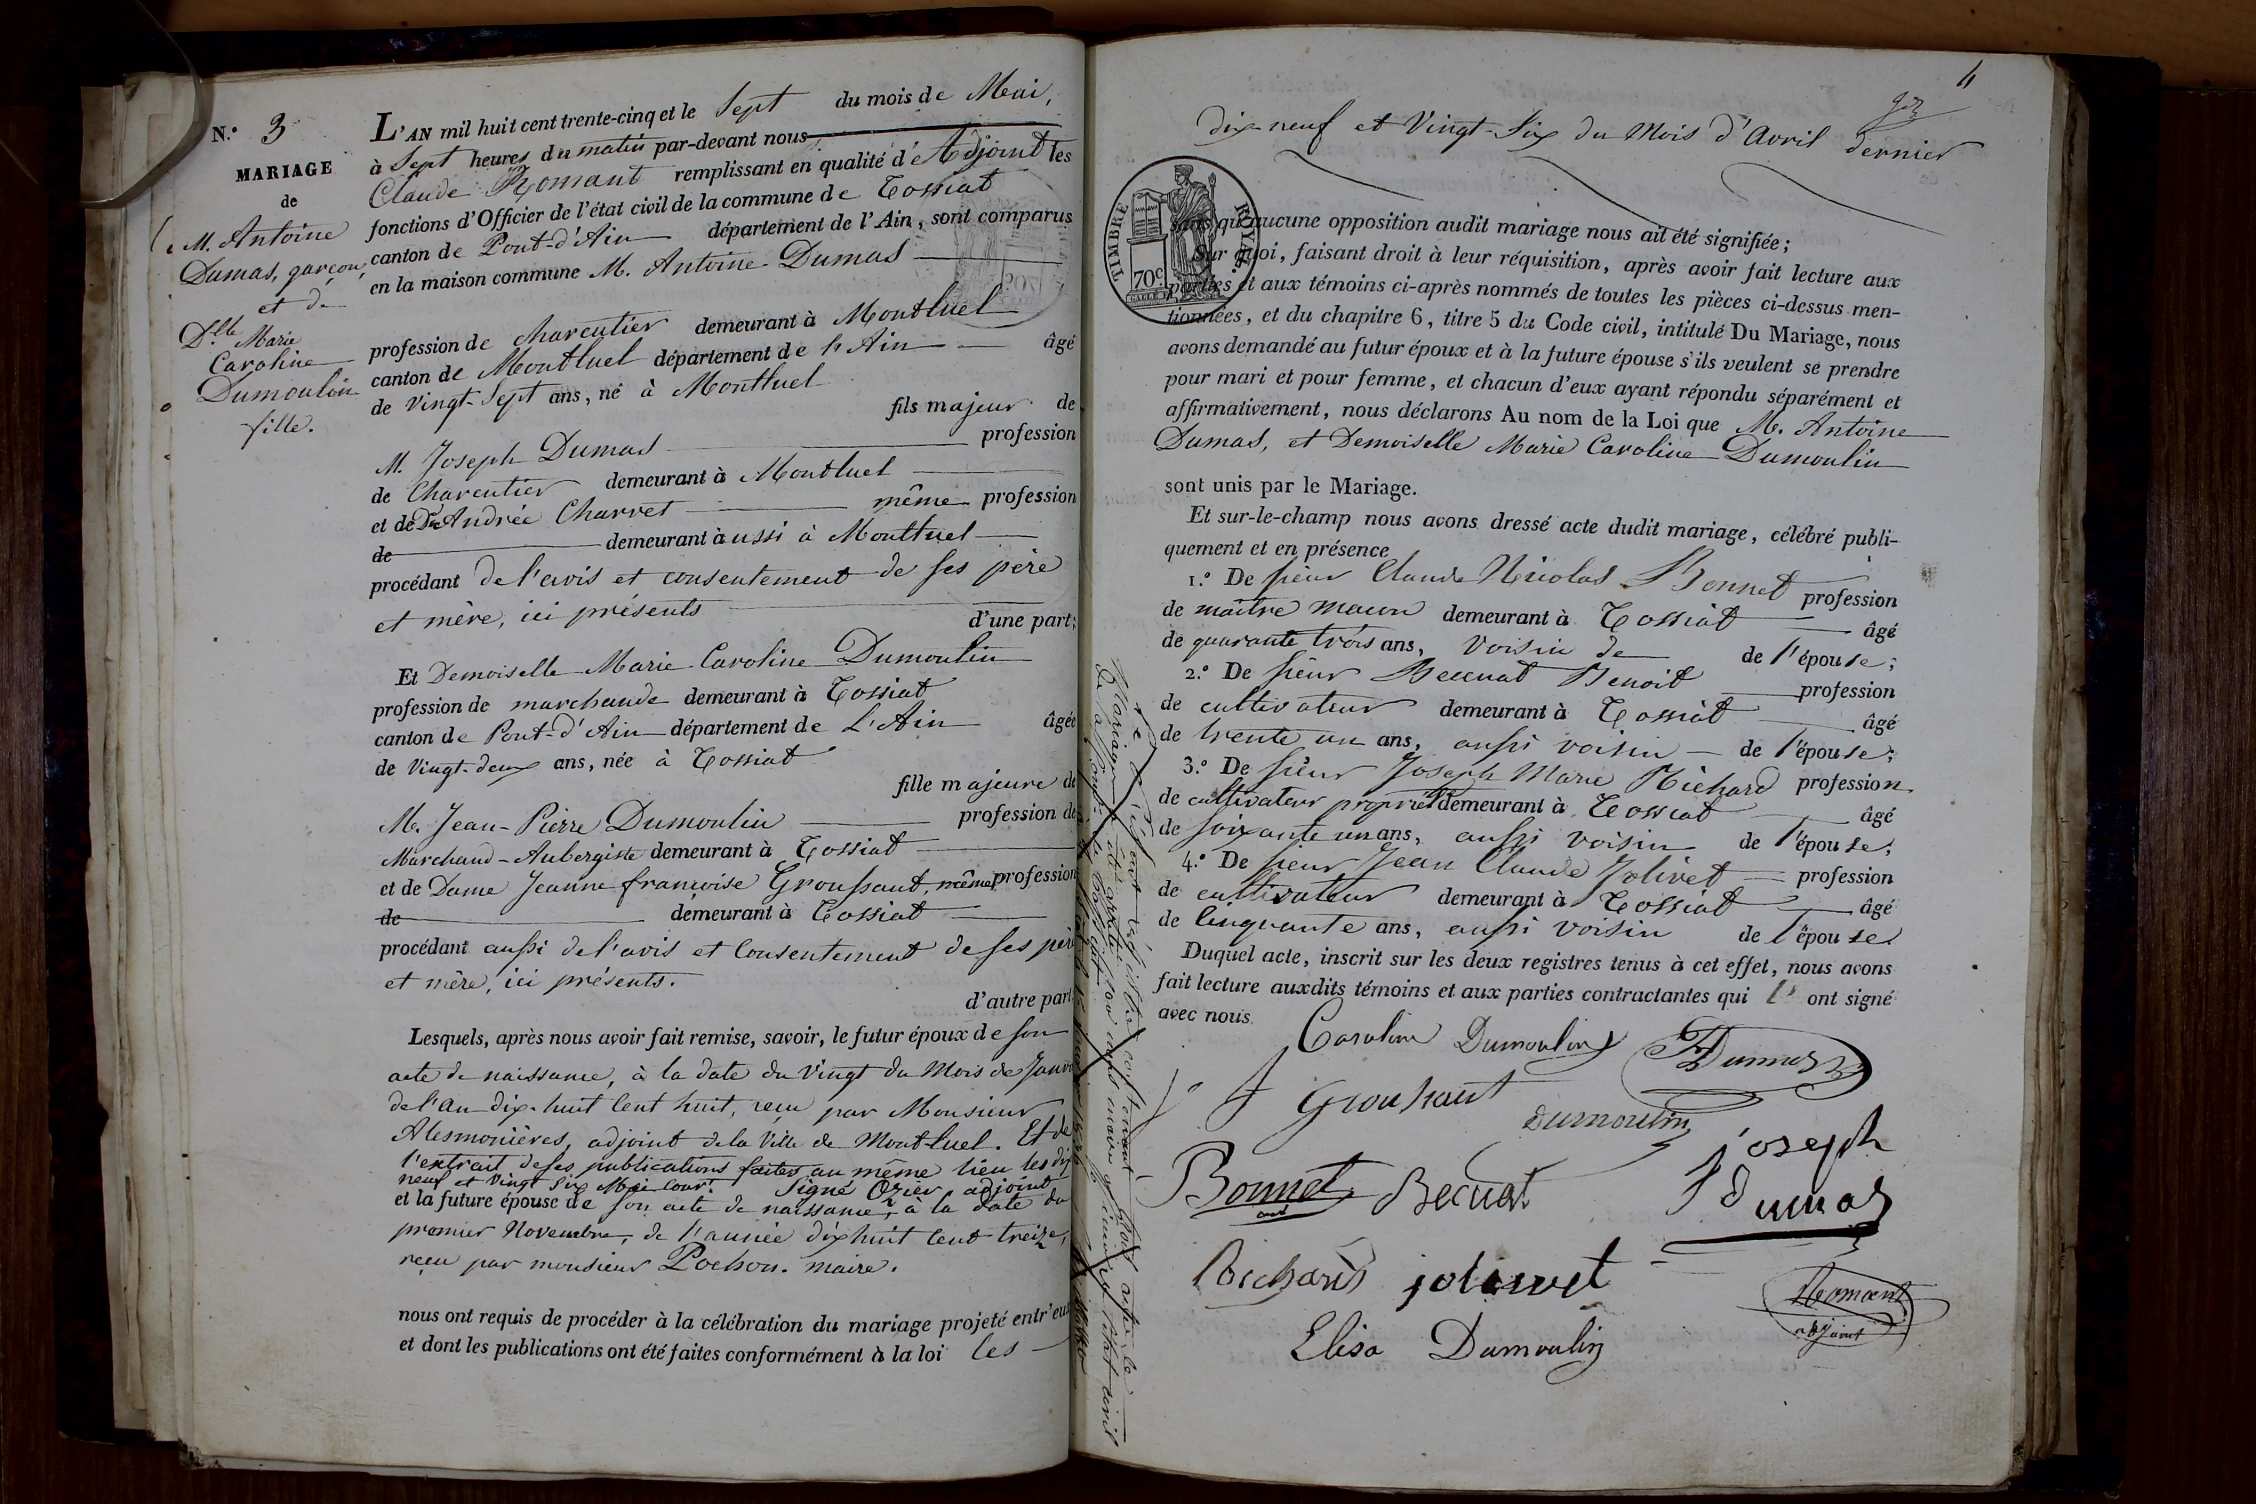 N.° 3
MARIAGE
de
M. Antoine
Dumas, garçon,
et de
D.lle Marie
Caroline
Dumoulin
fille.
L'AN mil huit cent trente-cinq et le Sept du mois de Mai,
à Sept heures du matin par-devant nous
Claude Romant remplissant en qualité d'Adjoint les
fonctions d'Officier de l'état civil de la commune de Tossiat
canton de Pont-d'Ain département de l'Ain, sont comparus
en la maison commune M. Antoine Dumas
profession de charcutier demeurant à Montluel
canton de Montluel département de l'Ain âgé
de vingt-sept ans, né à Montluel
fils majeur de
M. Joseph Dumas profession
de Charcutier demeurant à Montluel
et de D.e Andrée Charvet même profession
de demeurant aussi à Montluel
procédant de l'avis et consentement de ses père
et mère, ici présents d'une part;
Et Demoiselle Marie Caroline Dumoulin
profession de marchande demeurant à Tossiat
canton de Pont-d'Ain département de L'Ain âgée
de vingt-deux ans, née à Tossiat
fille majeure de
M. Jean-Pierre Dumoulin profession de
Marchand-Aubergiste demeurant à Tossiat
et de Dame Jeanne françoise Groussaut, même profession
de demeurant à Tossiat
procédant aussi de l'avis et Consentement de ses père
et mère, ici présents.
d'autre part
Lesquels, après nous avoir fait remise, savoir, le futur époux de son
acte de naissance, à la date du vingt du Mois de Janvi
de l'an dix-huit Cent huit, reçu par Monsieur
Alesmonières, adjoint de la Ville de Montluel. Et de
l'extrait de ses publications faites au même lieu les dix
neuf et vingt six Mai cour.t Signé Ozier adjoint
et la future épouse de son acte de naissance, à la date du
premier Novembre, de l'année dixhuit cent treize,
reçu par monsieur Pochon. maire.
nous ont requis de procéder à la célébration du mariage projeté entr'eux
et dont les publications ont été faites conformément à la loi les
4
dix-neuf et Vingt-Six du Mois d'Avril dernier
TIMBRE ROYAL.
70c
sans qu'aucune opposition audit mariage nous ait été signifiée;
Sur quoi, faisant droit à leur réquisition, après avoir fait lecture aux
parties et aux témoins ci-après nommés de toutes les pièces ci-dessus men-
tionnées, et du chapitre 6, titre 5 du Code civil, intitulé Du Mariage, nous
avons demandé au futur époux et à la future épouse s'ils veulent se prendre
pour mari et pour femme, et chacun d'eux ayant répondu séparément et
affirmativement, nous déclarons Au nom de la Loi que M. Antoine
Dumas, et Demoiselle Marie Caroline Dumoulin
sont unis par le Mariage.
Et sur-le-champ nous avons dressé acte dudit mariage, célébré publi-
quement et en présence
1.° De sieur Claude Nicolas Bonnet profession
de maître maçon demeurant à Tossiat âgé
de quarante trois ans, voisin de de l'épouse;
2.° De sieur Becuat Benoit profession
de cultivateur demeurant à Tossiat âgé
de trente un ans, aussi voisin de l'épouse;
3.° De sieur Joseph Marie Richard profession
de cultivateur propriét.re demeurant à Tossiat âgé
de soixante un ans, aussi voisin de l'épouse;
4.° De sieur Jean Claude Jolivet profession
de cultivateur demeurant à Tossiat âgé
de Cinquante ans, aussi voisin de l'épouse.
Duquel acte, inscrit sur les deux registres tenus à cet effet, nous avons
fait lecture auxdits témoins et aux parties contractantes qui ont signé
avec nous.
Caroline Dumoulin
Dumas
Groussaut
Dumoulin
joseph
Dumas
Bonnet
Becuat
Richard
jolivet
Romant
adjoint
Elisa Dumoulin